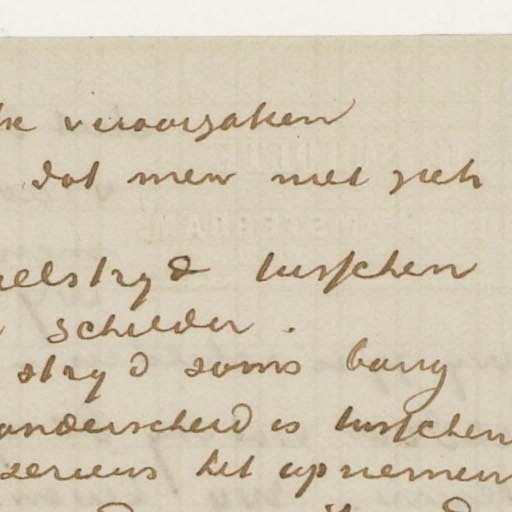 veroorzaken
dat men met zich
elstryd tusschen
schilder.
stryd soms bang
onderscheid is tusschen
zenuws het opnemen